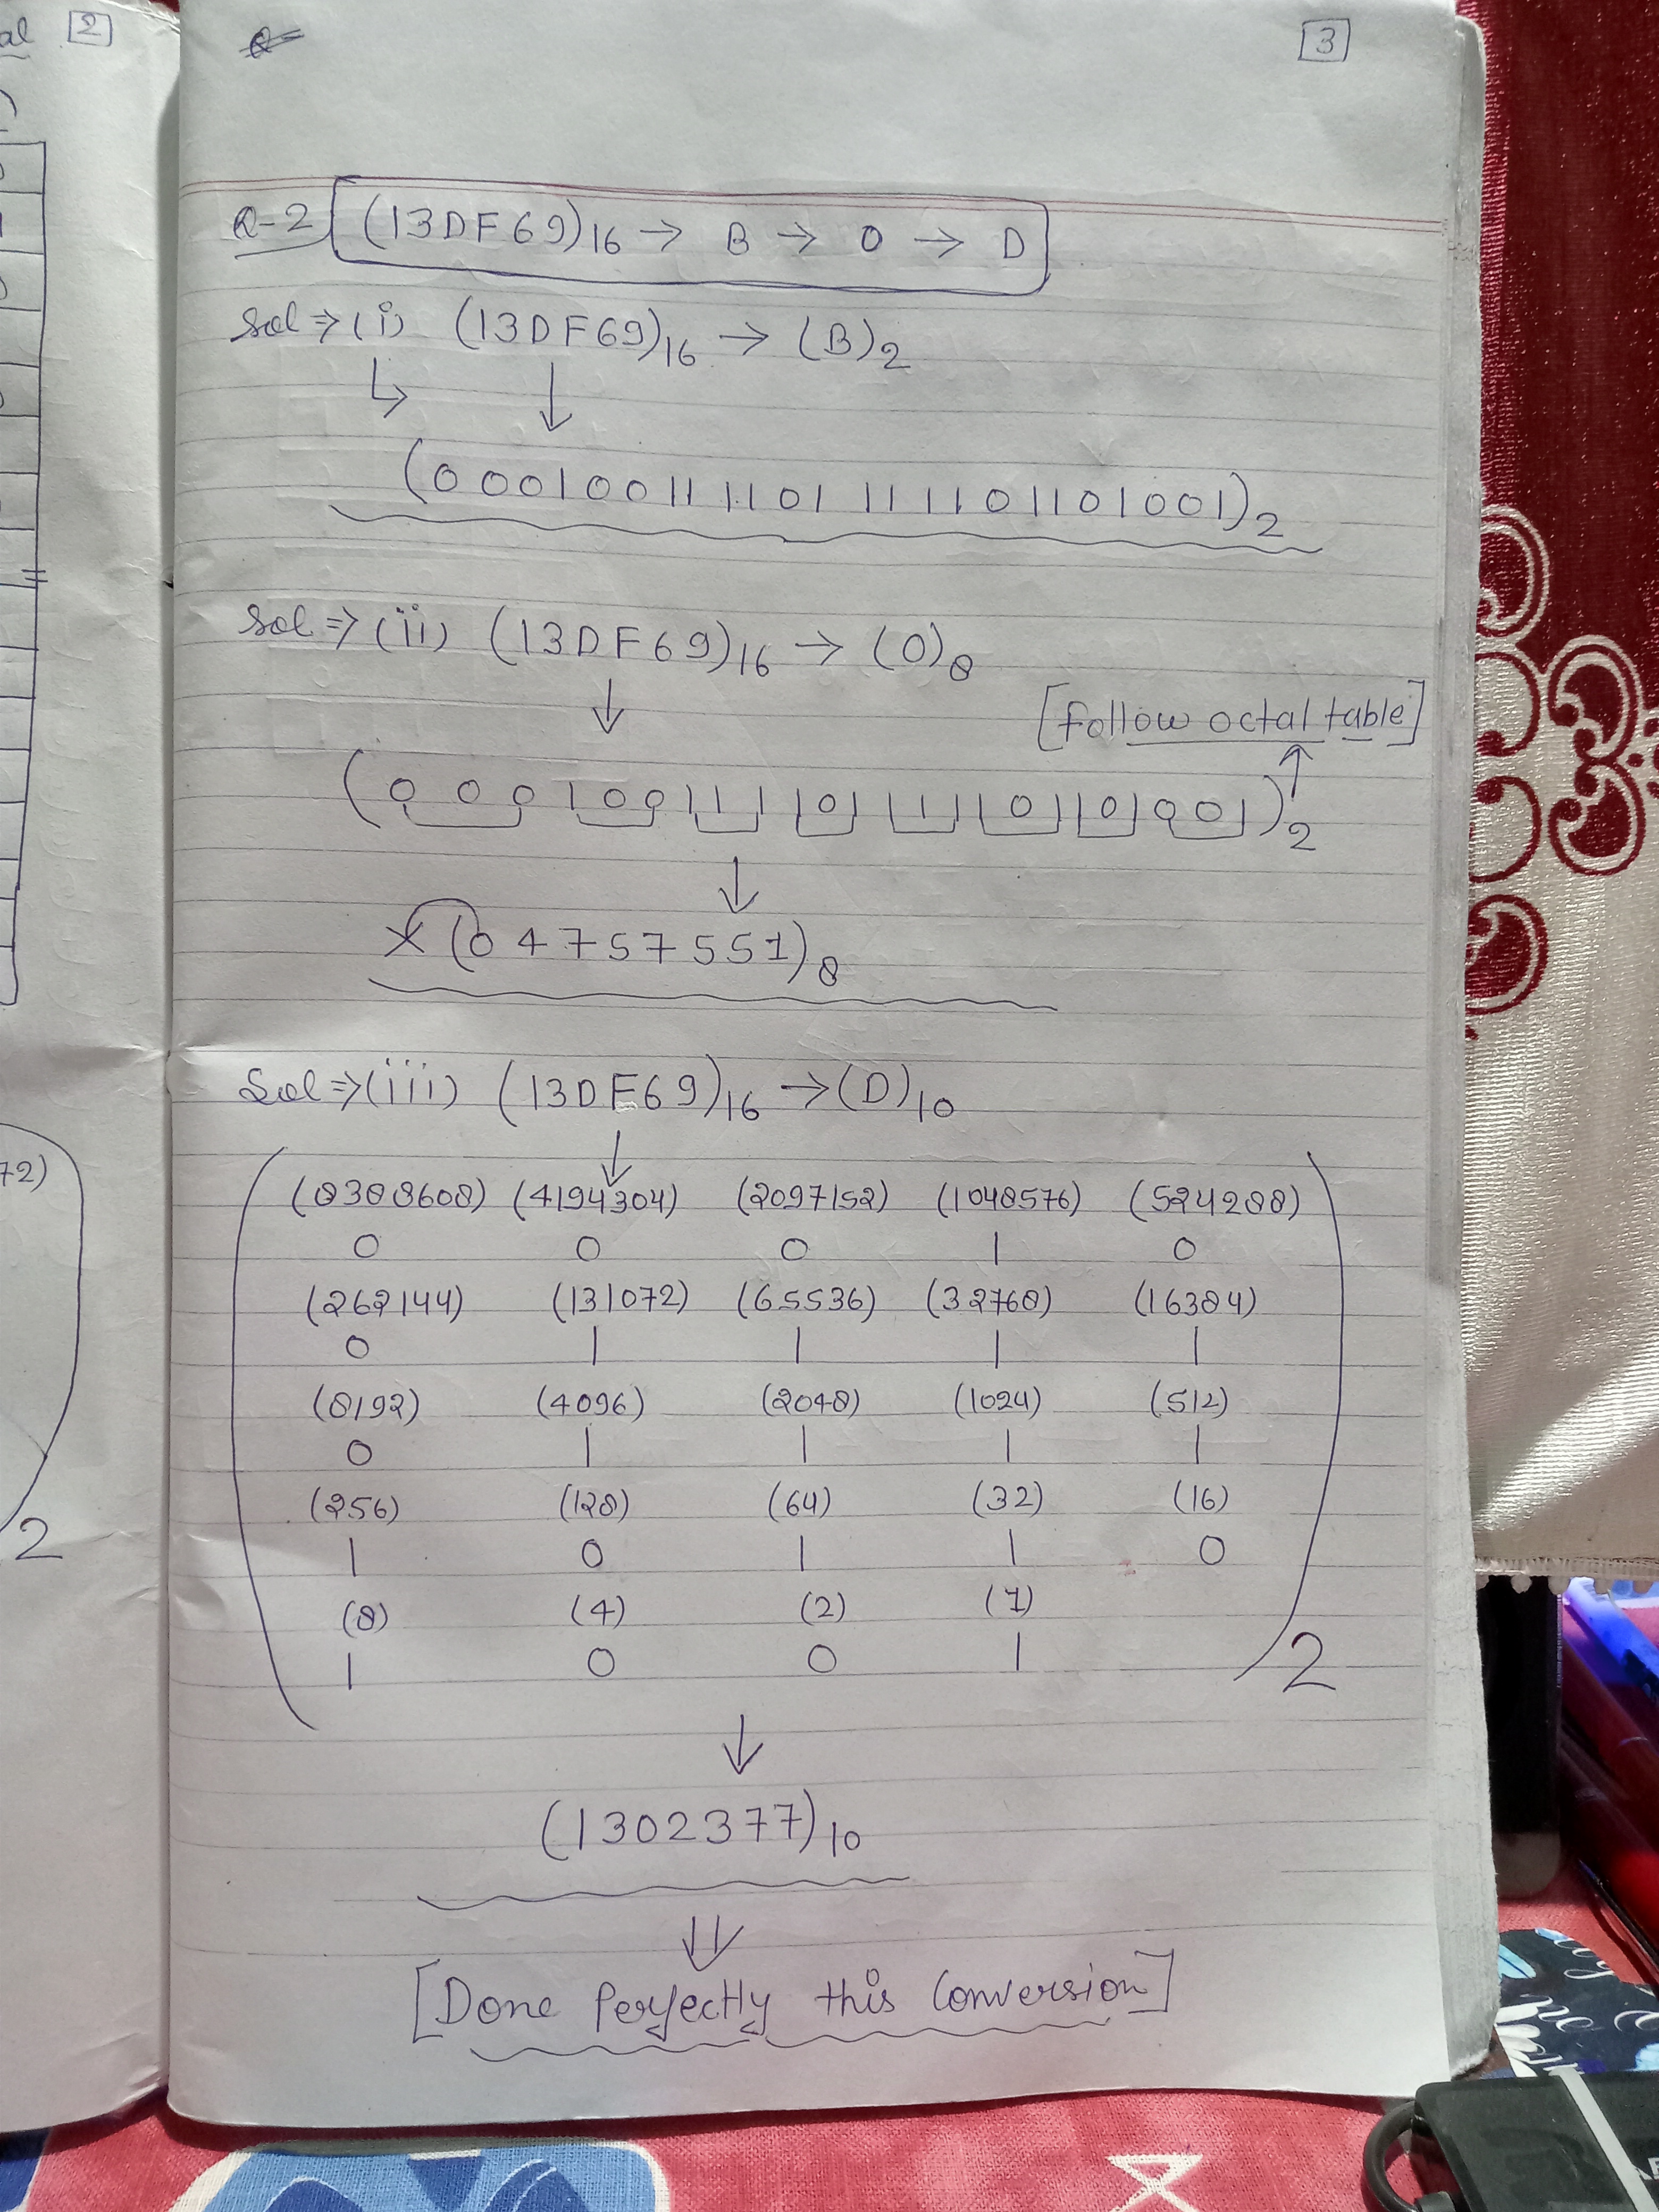 al [2]
[3]
Q-2 (13DF69)16 → B → O → D
Sol ⇒ (i) (13DF69)16 → (B)2
(000100111101111101101001)2
Sol ⇒ (ii) (13DF69)16 → (O)8
[Follow octal table]
(000100111101111101101001)2
(04757551)8
Sol ⇒ (iii) (13DF69)16 → (D)10
(8388608) (4194304) (2097152) (1048576) (524288)
0 0 0 1 0
(262144) (131072) (65536) (32768) (16384)
0 1 1 1 1
(8192) (4096) (2048) (1024) (512)
0 1 1 1 1
(256) (128) (64) (32) (16)
1 0 1 1 0
(8) (4) (2) (1)
1 0 0 1
2
(1302377)10
[Done Perfectly this Conversion]
72)
2